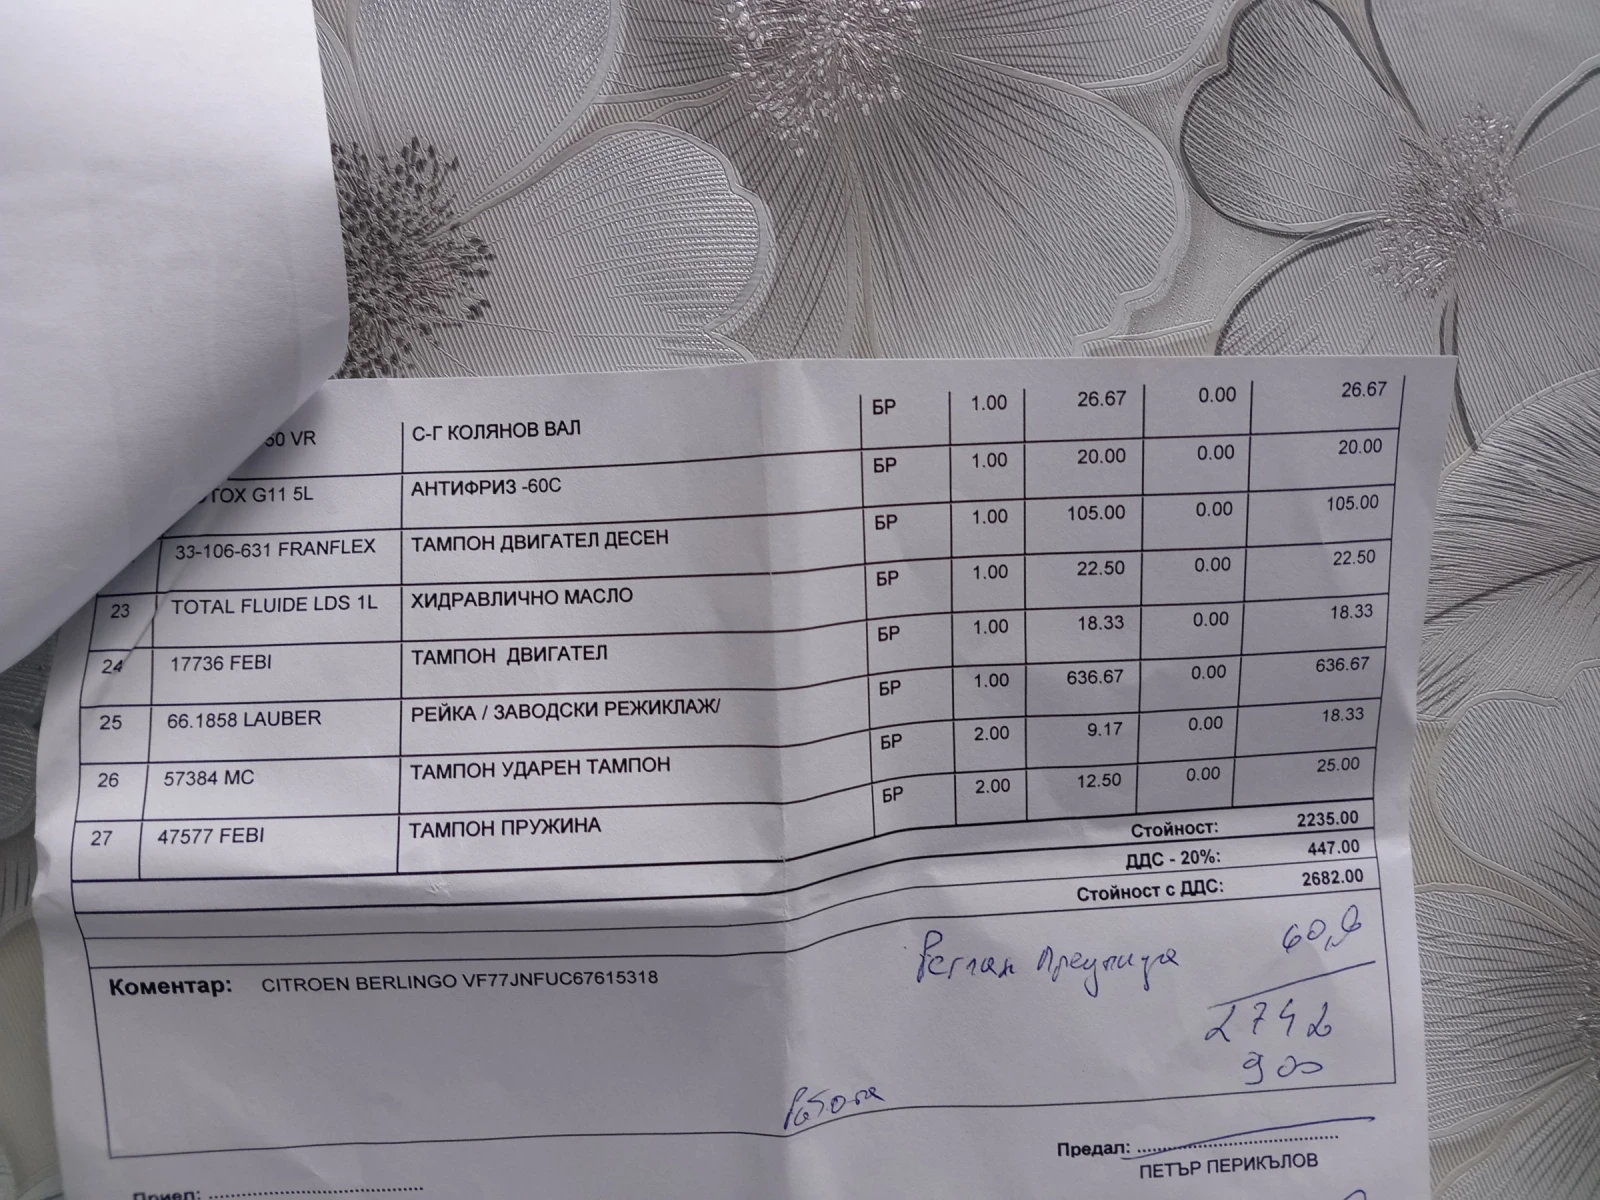 50 VR С-Г КОЛЯНОВ ВАЛ БР 1.00 26.67 0.00 26.67
TOX G11 5L АНТИФРИЗ -60С БР 1.00 20.00 0.00 20.00
33-106-631 FRANFLEX ТАМПОН ДВИГАТЕЛ ДЕСЕН БР 1.00 105.00 0.00 105.00
23 TOTAL FLUIDE LDS 1L ХИДРАВЛИЧНО МАСЛО БР 1.00 22.50 0.00 22.50
24 17736 FEBI ТАМПОН ДВИГАТЕЛ БР 1.00 18.33 0.00 18.33
25 66.1858 LAUBER РЕЙКА / ЗАВОДСКИ РЕЖИКЛАЖ/ БР 1.00 636.67 0.00 636.67
26 57384 MC ТАМПОН УДАРЕН ТАМПОН БР 2.00 9.17 0.00 18.33
27 47577 FEBI ТАМПОН ПРУЖИНА БР 2.00 12.50 0.00 25.00
Стойност: 2235.00
ДДС - 20%: 447.00
Стойност с ДДС: 2682.00
60,0
Коментар: CITROEN BERLINGO VF77JNFUC67615318
2742
900
Работа
Предал:
ПЕТЪР ПЕРИКЪЛОВ
Приел: